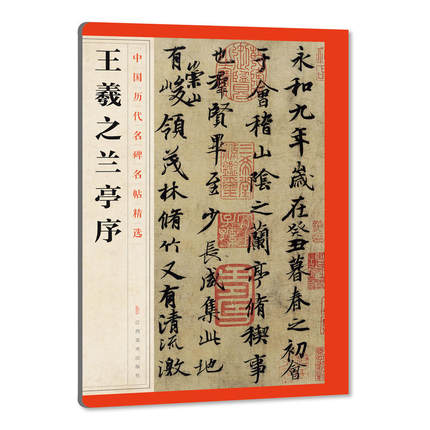 王羲之兰亭序
中国历代名碑名帖精选
江西美术出版社
永和九年歲在癸丑暮春之初會
于會稽山陰之蘭亭脩稧事
也羣賢畢至少長咸集此地
有崇山峻領茂林脩竹又有清流激